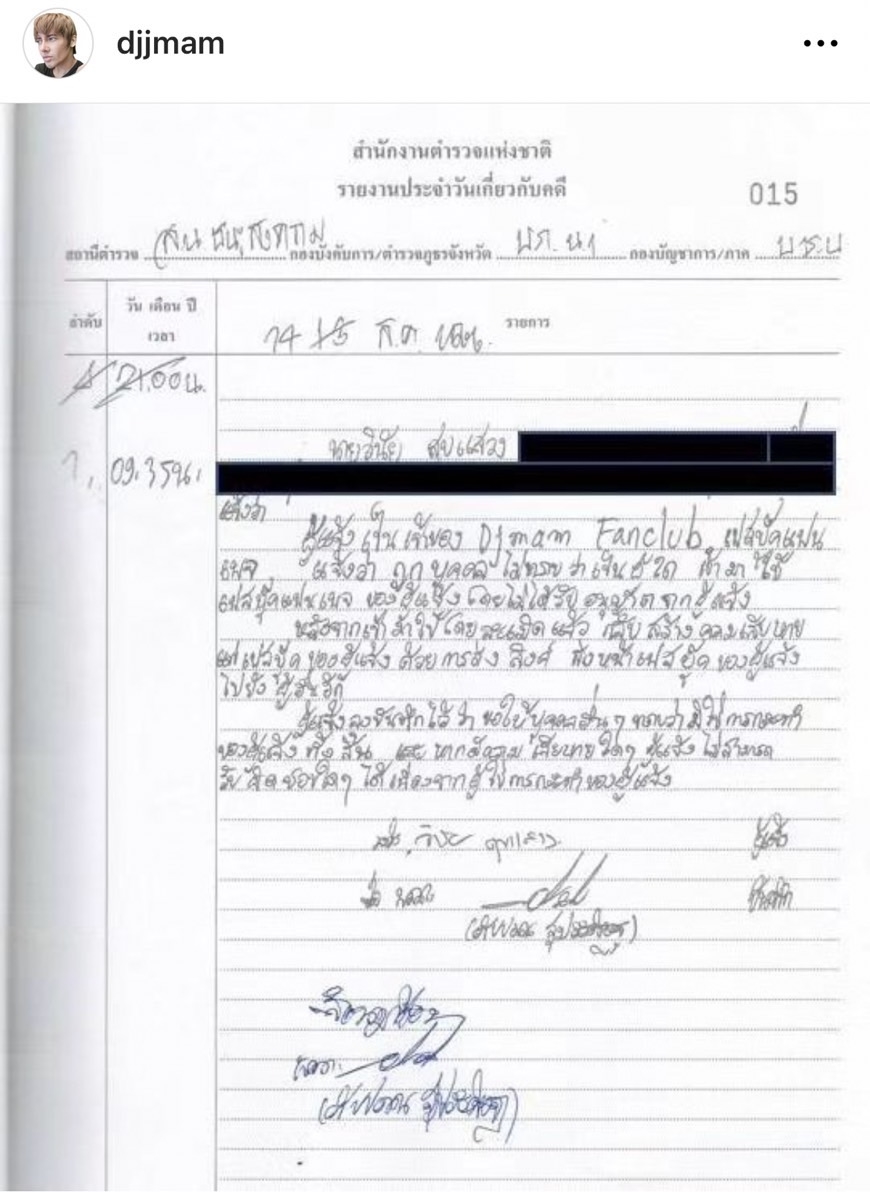 djjmam
สำนักงานตำรวจแห่งชาติ
รายงานประจำวันเกี่ยวกับคดี
015
สถานีตำรวจ สน ชนะสงคราม กองบังคับการ/ตำรวจภูธรจังหวัด บก.น.1 กองบัญชาการ/ภาค บช.น
ลำดับ
วัน เดือน ปี
เวลา
รายการ
14 15
21.00น.
1. 09.35น.
นายวินัย สุขแสวง
แจ้งว่า
ผู้แจ้งเป็นเจ้าของ Djmam Fanclub เฟสบุ๊คแฟน
เพจ ผู้แจ้งว่า ถูกบุคคลไม่ทราบว่าเป็นผู้ใด เข้ามาใช้
เฟสบุ๊คแฟนเพจ ของผู้แจ้งโดยไม่ได้รับอนุญาตจากผู้แจ้ง
หลังจากเข้ามาใช้โดยละเมิดแล้ว สร้างความเสียหาย
แก่เฟสบุ๊คของผู้แจ้ง ด้วยการส่งลิงค์ หน้าเฟสบุ๊คของผู้แจ้ง
ไปยังผู้อื่นอีก
ผู้แจ้งลงบันทึกไว้ว่า ขอให้บุคคลอื่นๆ ทราบว่ามิใช่การกระทำ
ของผู้แจ้งทั้งสิ้น และหากมีความเสียหายใดๆ ผู้แจ้งไม่สามารถ
รับผิดชอบใดๆ ได้เนื่องจากมิใช่การกระทำของผู้แจ้ง
ผู้แจ้ง
บันทึก